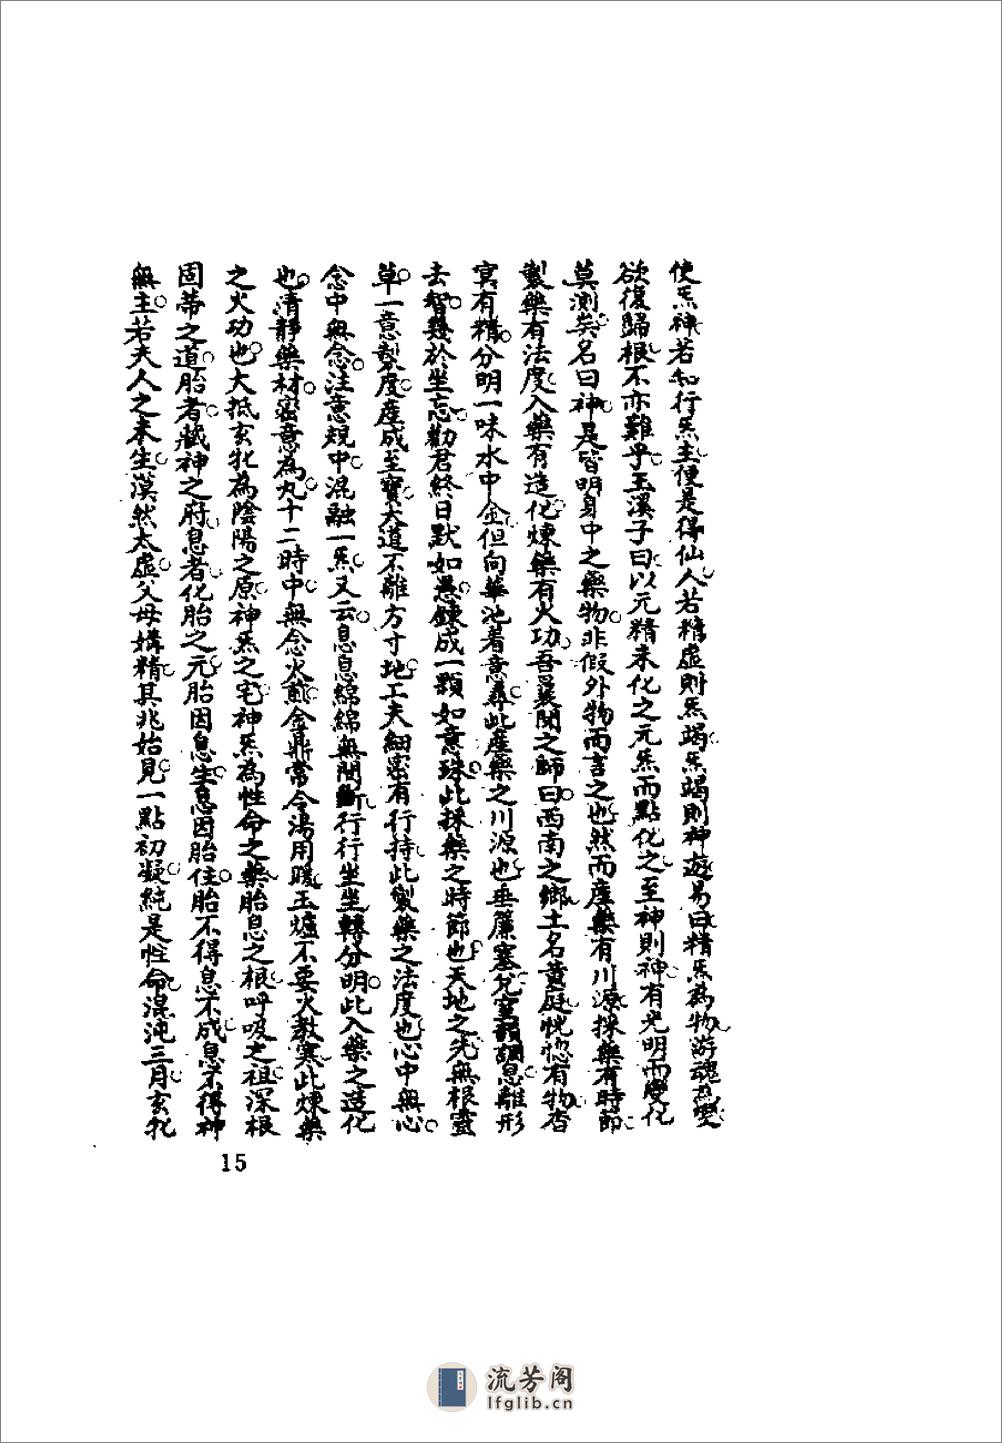 使炁神若知行炁主便是得仙人若精虛則炁竭炁竭則神遊易曰精炁為物游魂為變
欲復歸根不亦難乎玉溪子曰以元精未化之元炁而點化之至神則神有光明而變化
莫測矣名曰神是皆明身中之藥物非假外物而言之也然而產藥有川源採藥有時節
製藥有法度入藥有造化煉藥有火功吾曩聞之師曰西南之鄉土名黃庭恍惚有物杳
冥有精分明一味水中金但向華池着意尋此產藥之川源也垂簾塞兌窒調息離形
去智幾於坐忘勸君終日默如愚鍊成一顆如意珠此採藥之時節也天地之先無根靈
草一意製度產成至寶大道不離方寸地工夫細密有行持此製藥之法度也心中無心
念中無念注意規中混融一炁又云息息綿綿無間斷行行坐坐轉分明此入藥之造化
也清靜藥材密意為丸十二時中無念火煎金鼎常令湯用暖玉爐不要火教寒此煉藥
之火功也大抵玄牝為陰陽之原神炁之宅神炁為性命之藥胎息之根呼吸之祖深根
固蒂之道胎者藏神之府息者化胎之元胎因息生息因胎住胎不得息不成息不得神
無主若夫人之未生漠然太虛父母媾精其兆始見一點初凝純是性命混沌三月玄牝
15
流芳阁
lfglib.cn